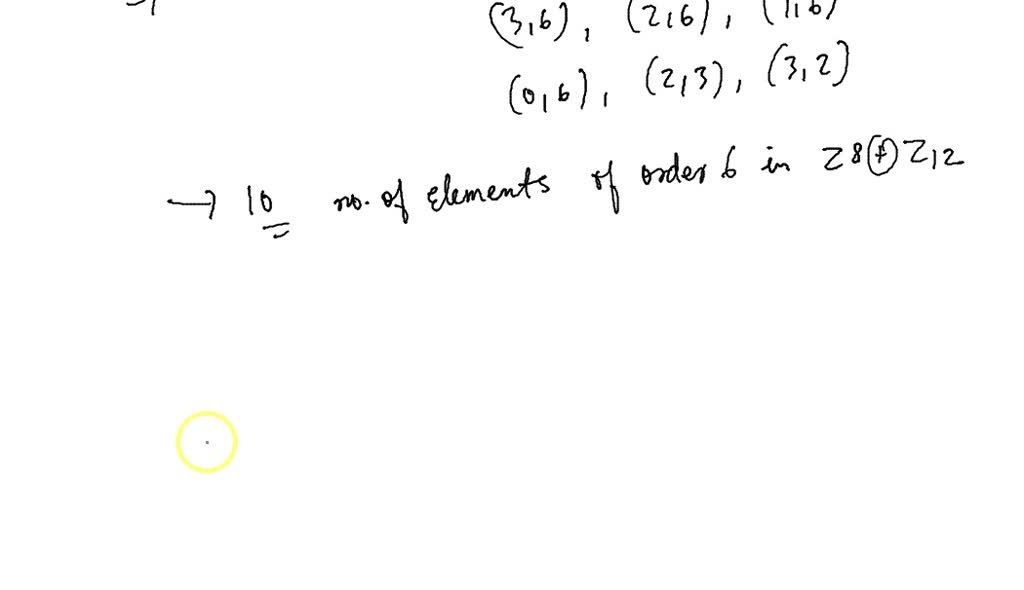 (3,6), (2,6), (1,6)
(0,6), (2,3), (3,2)
→ 10 no. of elements of order 6 in Z8⊕Z12